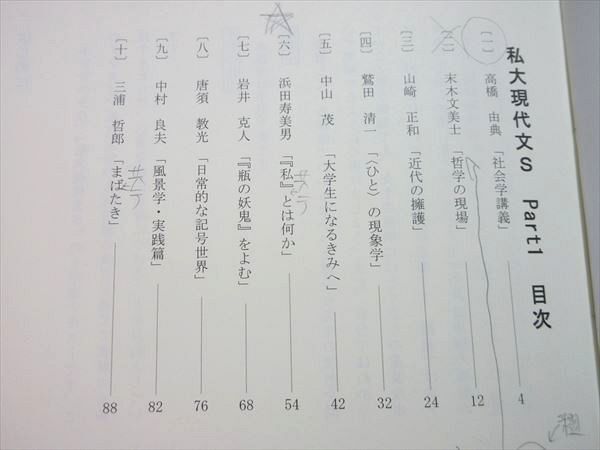 私大現代文S Part1 目次
〔一〕 高橋 由典 「社会学講義」 4
〔二〕 末木文美士 「哲学の現場」 12
〔三〕 山崎 正和 「近代の擁護」 24
〔四〕 鷲田 清一 「〈ひと〉の現象学」 32
〔五〕 中山 茂 「大学生になるきみへ」 42
〔六〕 浜田寿美男 「『私』とは何か」 54
〔七〕 岩井 克人 「『瓶の妖鬼』をよむ」 68
〔八〕 唐須 教光 「日常的な記号世界」 76
〔九〕 中村 良夫 「風景学・実践篇」 82
〔十〕 三浦 哲郎 「まばたき」 88